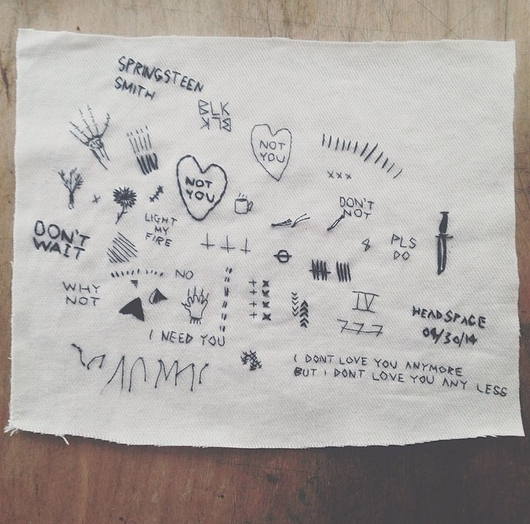 SPRINGSTEEN
SMITH
BLK
BLK
NOT
YOU
NOT
YOU
XXX
DON'T
NOT
LIGHT
MY
FIRE
DON'T
WAIT
PLS
DO
8
NO
WHY
NOT
IV
777
I NEED YOU
HEADSPACE
09/30/14
I DONT LOVE YOU ANYMORE
BUT I DONT LOVE YOU ANY LESS